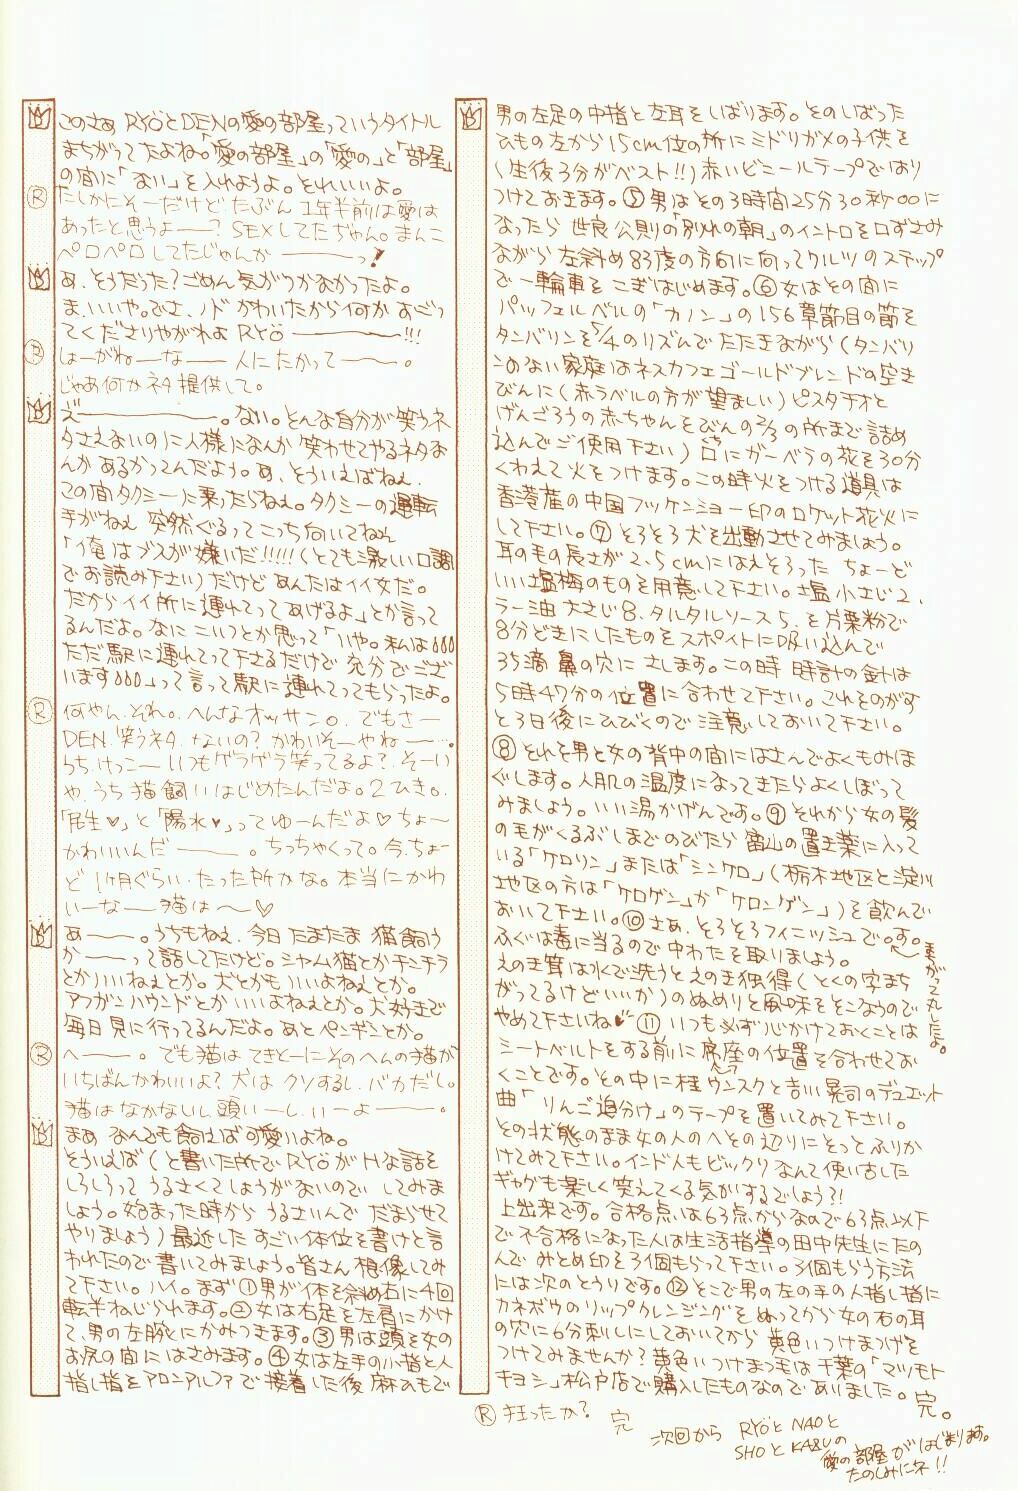 このさぁ RYÖとDENの愛の部屋っていうタイトル
まちがってたよね。「愛の部屋」の「愛の」と「部屋」
の間に「ない」を入れようよ。それいいよ。
Ⓡ たしかにそーだけど、たぶん 1年半前は愛は
あったと思うよー? SEXしてたぢゃん。まんこ
ペロペロしてたじゃんかーーっ!
あ、そうだった?ごめん気がつかなかったよ。
ま、いいや。でさ、ノドかわいたから何かおごっ
てくださりやがれよ RYÖ ーーー!!!
Ⓡ しょーがねーなー 人にたかってーー。
じゃあ何かネタ提供して。
えーーーー。ない。そんな自分が笑うネ
タさえないのに人様になんか笑わせてやるネタな
んかあるかってんだよう。あ、そういえばねぇ、
この間タクシーに乗ったらねぇ。タクシーの運転
手がねぇ 突然ぐるってこっち向いてねぇ
「俺はブスが嫌いだ!!!!!(とても激しい口調
でお読み下さい)だけどあんたはイイ女だ。
だからイイ所に連れてってあげるよ」とか言って
るんだよ。なにこいつとか思って「いや。私は
ただ駅に連れてって下さるだけで充分でござ
います」って言って駅に連れてってもらったよ。
Ⓡ 何やん、それ。へんなオッサン。でもさー
DEN、笑うネタ、ないの?かわいそーやねーー…。
うち、けっこーいつもゲラゲラ笑ってるよ?そーい
や、うち猫飼いはじめたんだよ。2ひき。
「民生♥」と「陽水♥」ってゆーんだよ♡ちょ〜
かわいいんだーーー。ちっちゃくって。今、ちょー
ど 1ヶ月ぐらい、たった所かな。本当にかわ
いーなー猫は〜♡
あーー。うちもねぇ、今日たまたま猫飼う
かーーって話してたけど。シャム猫とかチンチラ
とかいいねぇとか。犬とかもいいよねぇとか。
アフガンハウンドとかいいよねぇとか。犬好きで
毎日見に行ってるんだよ。あとペンギンとか。
Ⓡ へーー。でも猫は てきとーにそのへんの猫が
いちばんかわいいよ?犬はクソするし、バカだし。
猫はなかないし、頭いーし、いーよーーー。
まぁ なんでも飼えば可愛いよね。
そういえば(と書いた所でRYÖがHな話を
しろしろってうるさくてしょうがないので してみま
しょう。始まった時からうるさいんで だまらせて
やりましょう)最近したすごい体位を書けと言
われたので書いてみましょう。皆さん想像してみ
て下さい。ハイ。まず①男が体を斜め右に4回
転半ねじられます。②女は右足を左肩にかけ
て、男の左腕にかみつきます。③男は頭を女の
お尻の間にはさみます。④女は左手の小指と人
指し指をアロンアルファで接着した後 麻ひもで
男の左足の中指と左耳をしばります。そのしばった
ひもの左から15cm位の所にミドリガメの子供を
(生後3分がベスト!!)赤いビニールテープではり
つけておきます。⑤男はその3時間25分30秒00に
なったら 世良公則の「別れの朝」のイントロを口ずさみ
ながら左斜め83度の方向に向ってワルツのステップ
で一輪車をこぎはじめます。⑥女はその間に
パッフェルベルの「カノン」の156章節目の節を
タンバリンを5/4のリズムでたたきながら(タンバリ
ンのない家庭はネスカフェゴールドブレンドの空き
びんに(赤ラベルの方が望ましい)ピスタチオと
げんごろうの赤ちゃんをびんの2/3の所まで詰め
込んでご使用下さい)口にガーベラの花を30分
くわえて火をつけます。この時火をつける道具は
香港産の中国フッケンショー印のロケット花火に
して下さい。⑦そろそろ犬を出動させてみましょう。
耳の毛の長さが2.5cmにはえそろった ちょーど
いい塩梅のものを用意して下さい。塩小さじ2、
ラー油大さじ8、タルタルソース5、を片栗粉で
8分どきにしたものをスポイトに吸い込んで
35滴鼻の穴にさします。この時 時計の針は
5時47分の位置に合わせて下さい。これをのがす
と3日後にひびくので注意しておいて下さい。
⑧それを男と女の背中の間にはさんでよくもみほ
ぐします。人肌の温度になってきたらよくしぼって
みましょう。いい湯かげんです。⑨それから女の髪
の毛がくるぶしまでのびたら富山の置き薬に入って
いる「ケロリン」または「シンケロ」(栃木地区と淀川
地区の方は「ケロゲン」か「ケロンゲン」)を飲んで
おいて下さい。⑩さぁ、そろそろフィニッシュで。す。
まちがって丸したよ。
ふぐは毒に当るので中わたを取りましょう。
えのき茸は水で洗うとえのき独得(とくの字まち
がってるけどいいか)のぬめりと風味をそこなうので
やめて下さいね♥ ⑪いつも必ず心がけておくことは
シートベルトをする前に座席の位置を合わせてお
くことです。その中に桂ウンスクと吉川晃司のデュエット
曲「りんご追分け」のテープを置いてみて下さい。
その状態のまま女の人のへその辺りにそっとふりか
けてみて下さい。インド人もビックリなんて使い古した
ギャグも楽しく笑えてくる気がするでしょう?!
上出来です。合格点は63点からなので63点以下
で不合格になった人は生活指導の田中先生にたの
んでみとめ印を3個もらって下さい。3個もらう方法
には次のとうりです。⑫そこで男の左の手の人指し指に
カネボウのリップクレンジングをぬってから女の右の耳
の穴に6分刺しにしておいてから 黄色いつけまつげを
つけてみませんか?黄色いつけまつ毛は千葉の「マツモト
キヨシ」松戸店で購入したものなのでありました。完。
Ⓡ 狂ったか? 完
次回から RYÖとNAOと
SHOとKAZUの
愛の部屋がはじまります。
たのしみにネ!!